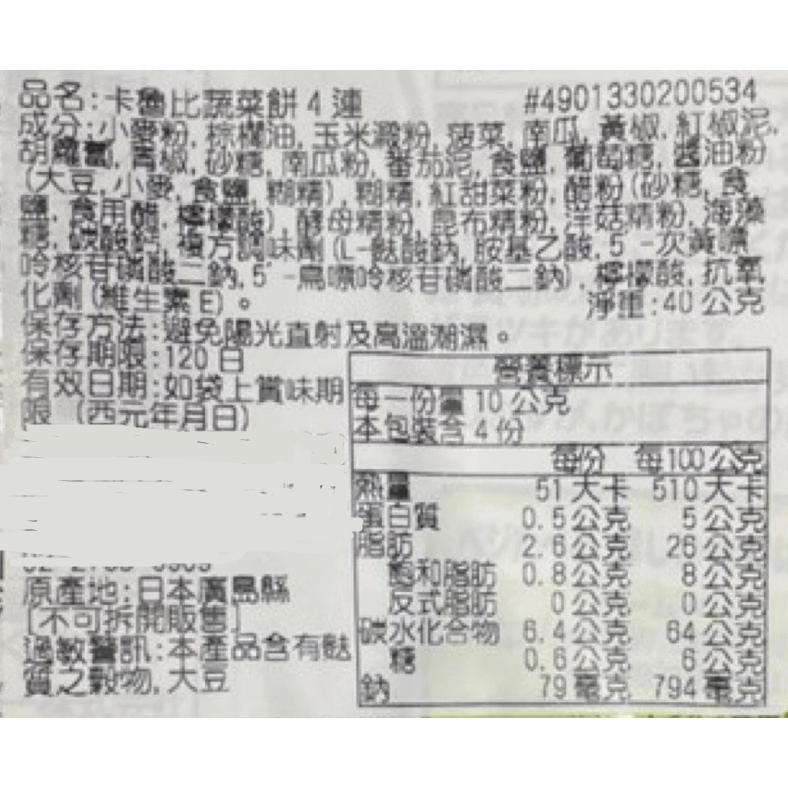 品名:卡魯比蔬菜餅4連 #4901330200534
成分:小麥粉,棕櫚油,玉米澱粉,菠菜,南瓜,黃椒,紅椒泥,
胡蘿蔔,青椒,砂糖,南瓜粉,番茄泥,食鹽,葡萄糖,醬油粉
(大豆,小麥,食鹽,糊精),糊精,紅甜菜粉,醋粉(砂糖,食
鹽,食用醋,檸檬酸),酵母精粉,昆布精粉,洋菇精粉,海藻
糖,碳酸鈣,複方調味劑(L-麩酸鈉,胺基乙酸,5'-次黃嘌
呤核苷磷酸二鈉,5'-鳥嘌呤核苷磷酸二鈉),檸檬酸,抗氧
化劑(維生素E)。 淨重:40公克
保存方法:避免陽光直射及高溫潮濕。
保存期限:120日
有效日期:如袋上賞味期
限 (西元年月日)
原產地:日本廣島縣
[不可拆開販售]
過敏警訊:本產品含有麩
質之穀物,大豆
營養標示
每一份量 10公克
本包裝含4份
每份 每100公克
熱量 51大卡 510大卡
蛋白質 0.5公克 5公克
脂肪 2.6公克 26公克
飽和脂肪 0.8公克 8公克
反式脂肪 0公克 0公克
碳水化合物 6.4公克 64公克
糖 0.6公克 6公克
鈉 79毫克 794毫克